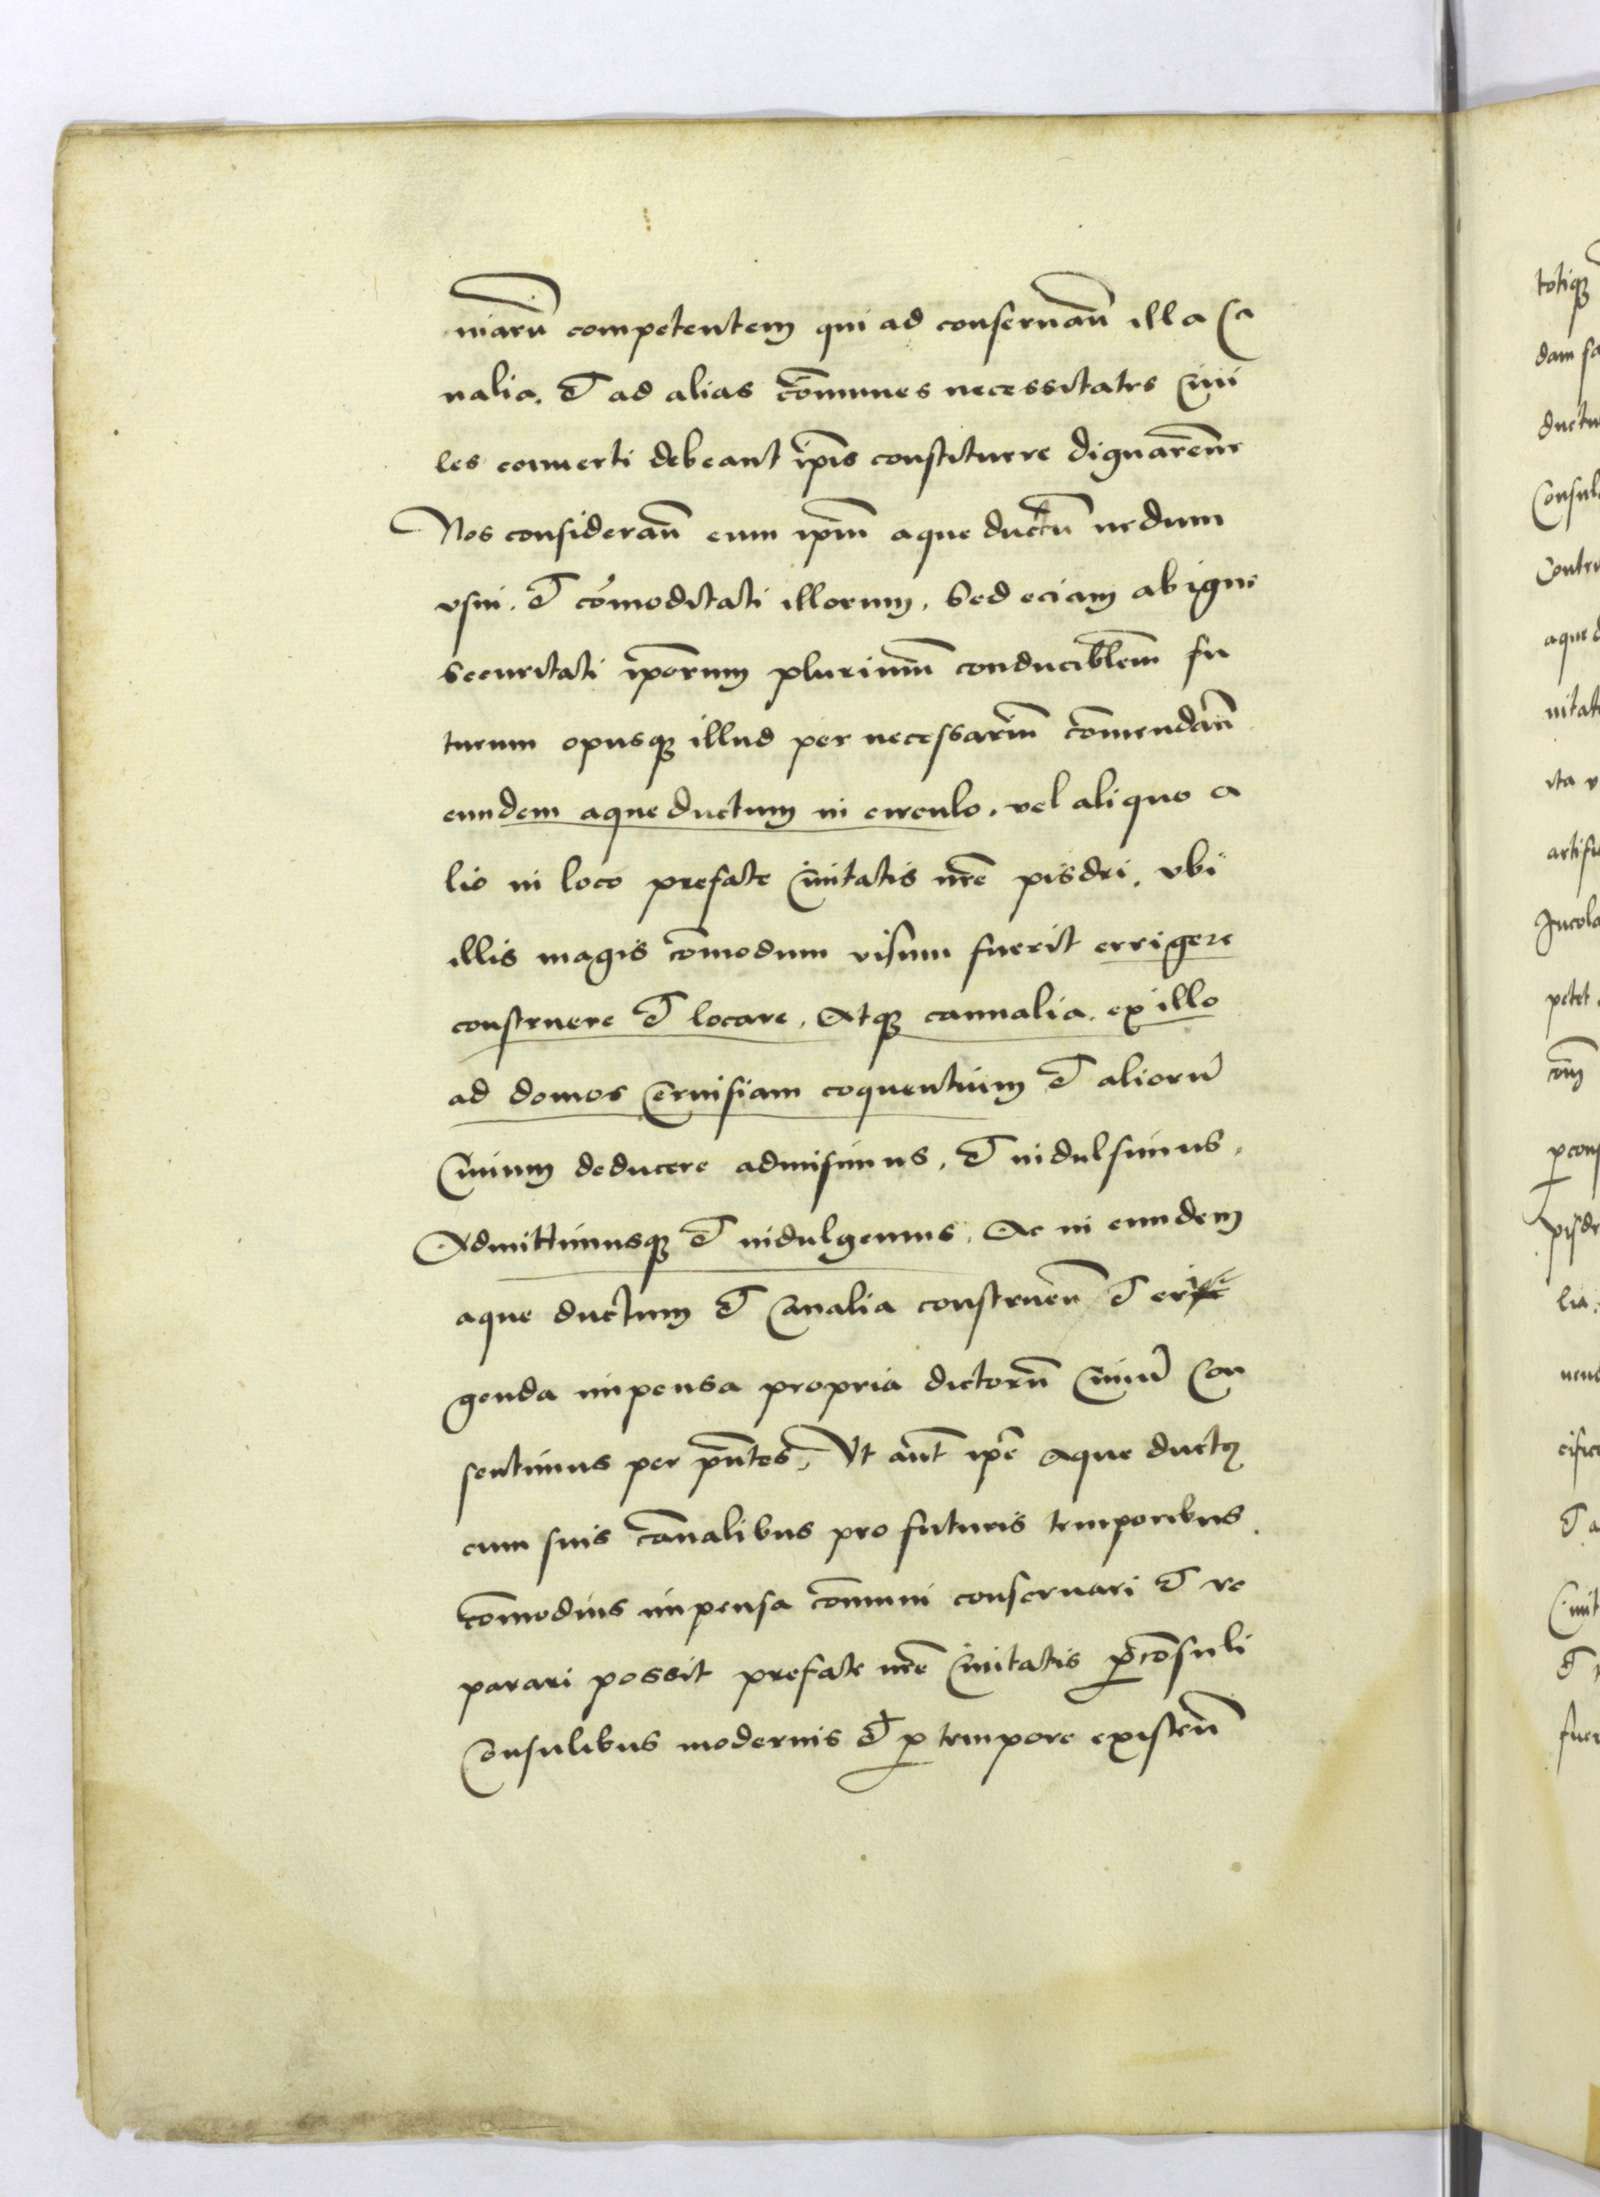 niarū competentem qui ad conseruan̄ illa ca
nalia. et ad alias cōmunes necessitates ciui
les conuerti debeant ip̄is constituere dignarem̄r
Nos consideran̄ cum ip̄m aque ductū nedum
vsui. et cōmoditati illorum. Sed eciam ab igne
securitati ip̄orum plurimū conducibilem̄ fu
turum opusq̨ illud per necessariū cōmendan̄
eundem aque ductum in circulo. vel aliquo a
lio in loco prefate Ciuitatis nr̄e pisdri. vbi
illis magis cōmodum visum fuerit errigere
construere et locare. Atq̨ cannalia. ex illo
ad domos ceruisiam coquentium et aliorū
Ciuium deducere admisimus. et indulsimus.
Admittimusq̨ et indulgemus. Ac in eundem
aque ductum et Canalia construen̄ et eri
genda impensa propria dictorū Ciuiū Con
sentimus per pn̄tes. Vt aūt ip̄e aque ductus
cum suis can̄alibus pro futuris temporibus.
cōmodius impensa cōmuni conseruari et re
parari possit prefate nr̄e Ciuitatis ꝓcōsuli
Consulibus modernis et ꝓ tempore existen̄
totiq̨
dam sa
ductu
Consul
Contr
aque d
uitat
ita v
artifi
Incola
petet
ꝓcons
pisdr
lia.
et a
Ciuit
et
fuer